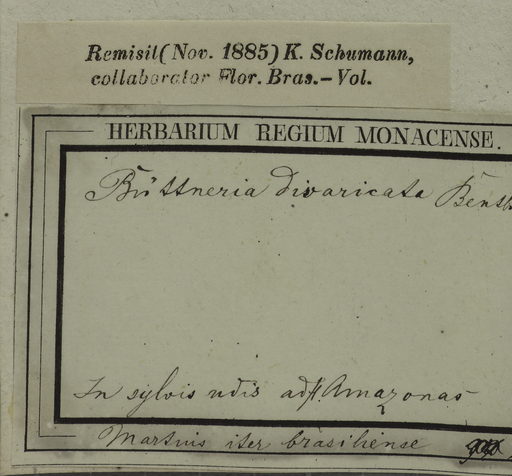 Remisit (Nov. 1885) K. Schumann,
collaborator Flor. Bras. – Vol.
HERBARIUM REGIUM MONACENSE.
Büttneria divaricata Benth
In sylvis udis ad fl Amazonas
Martius iter brasiliense